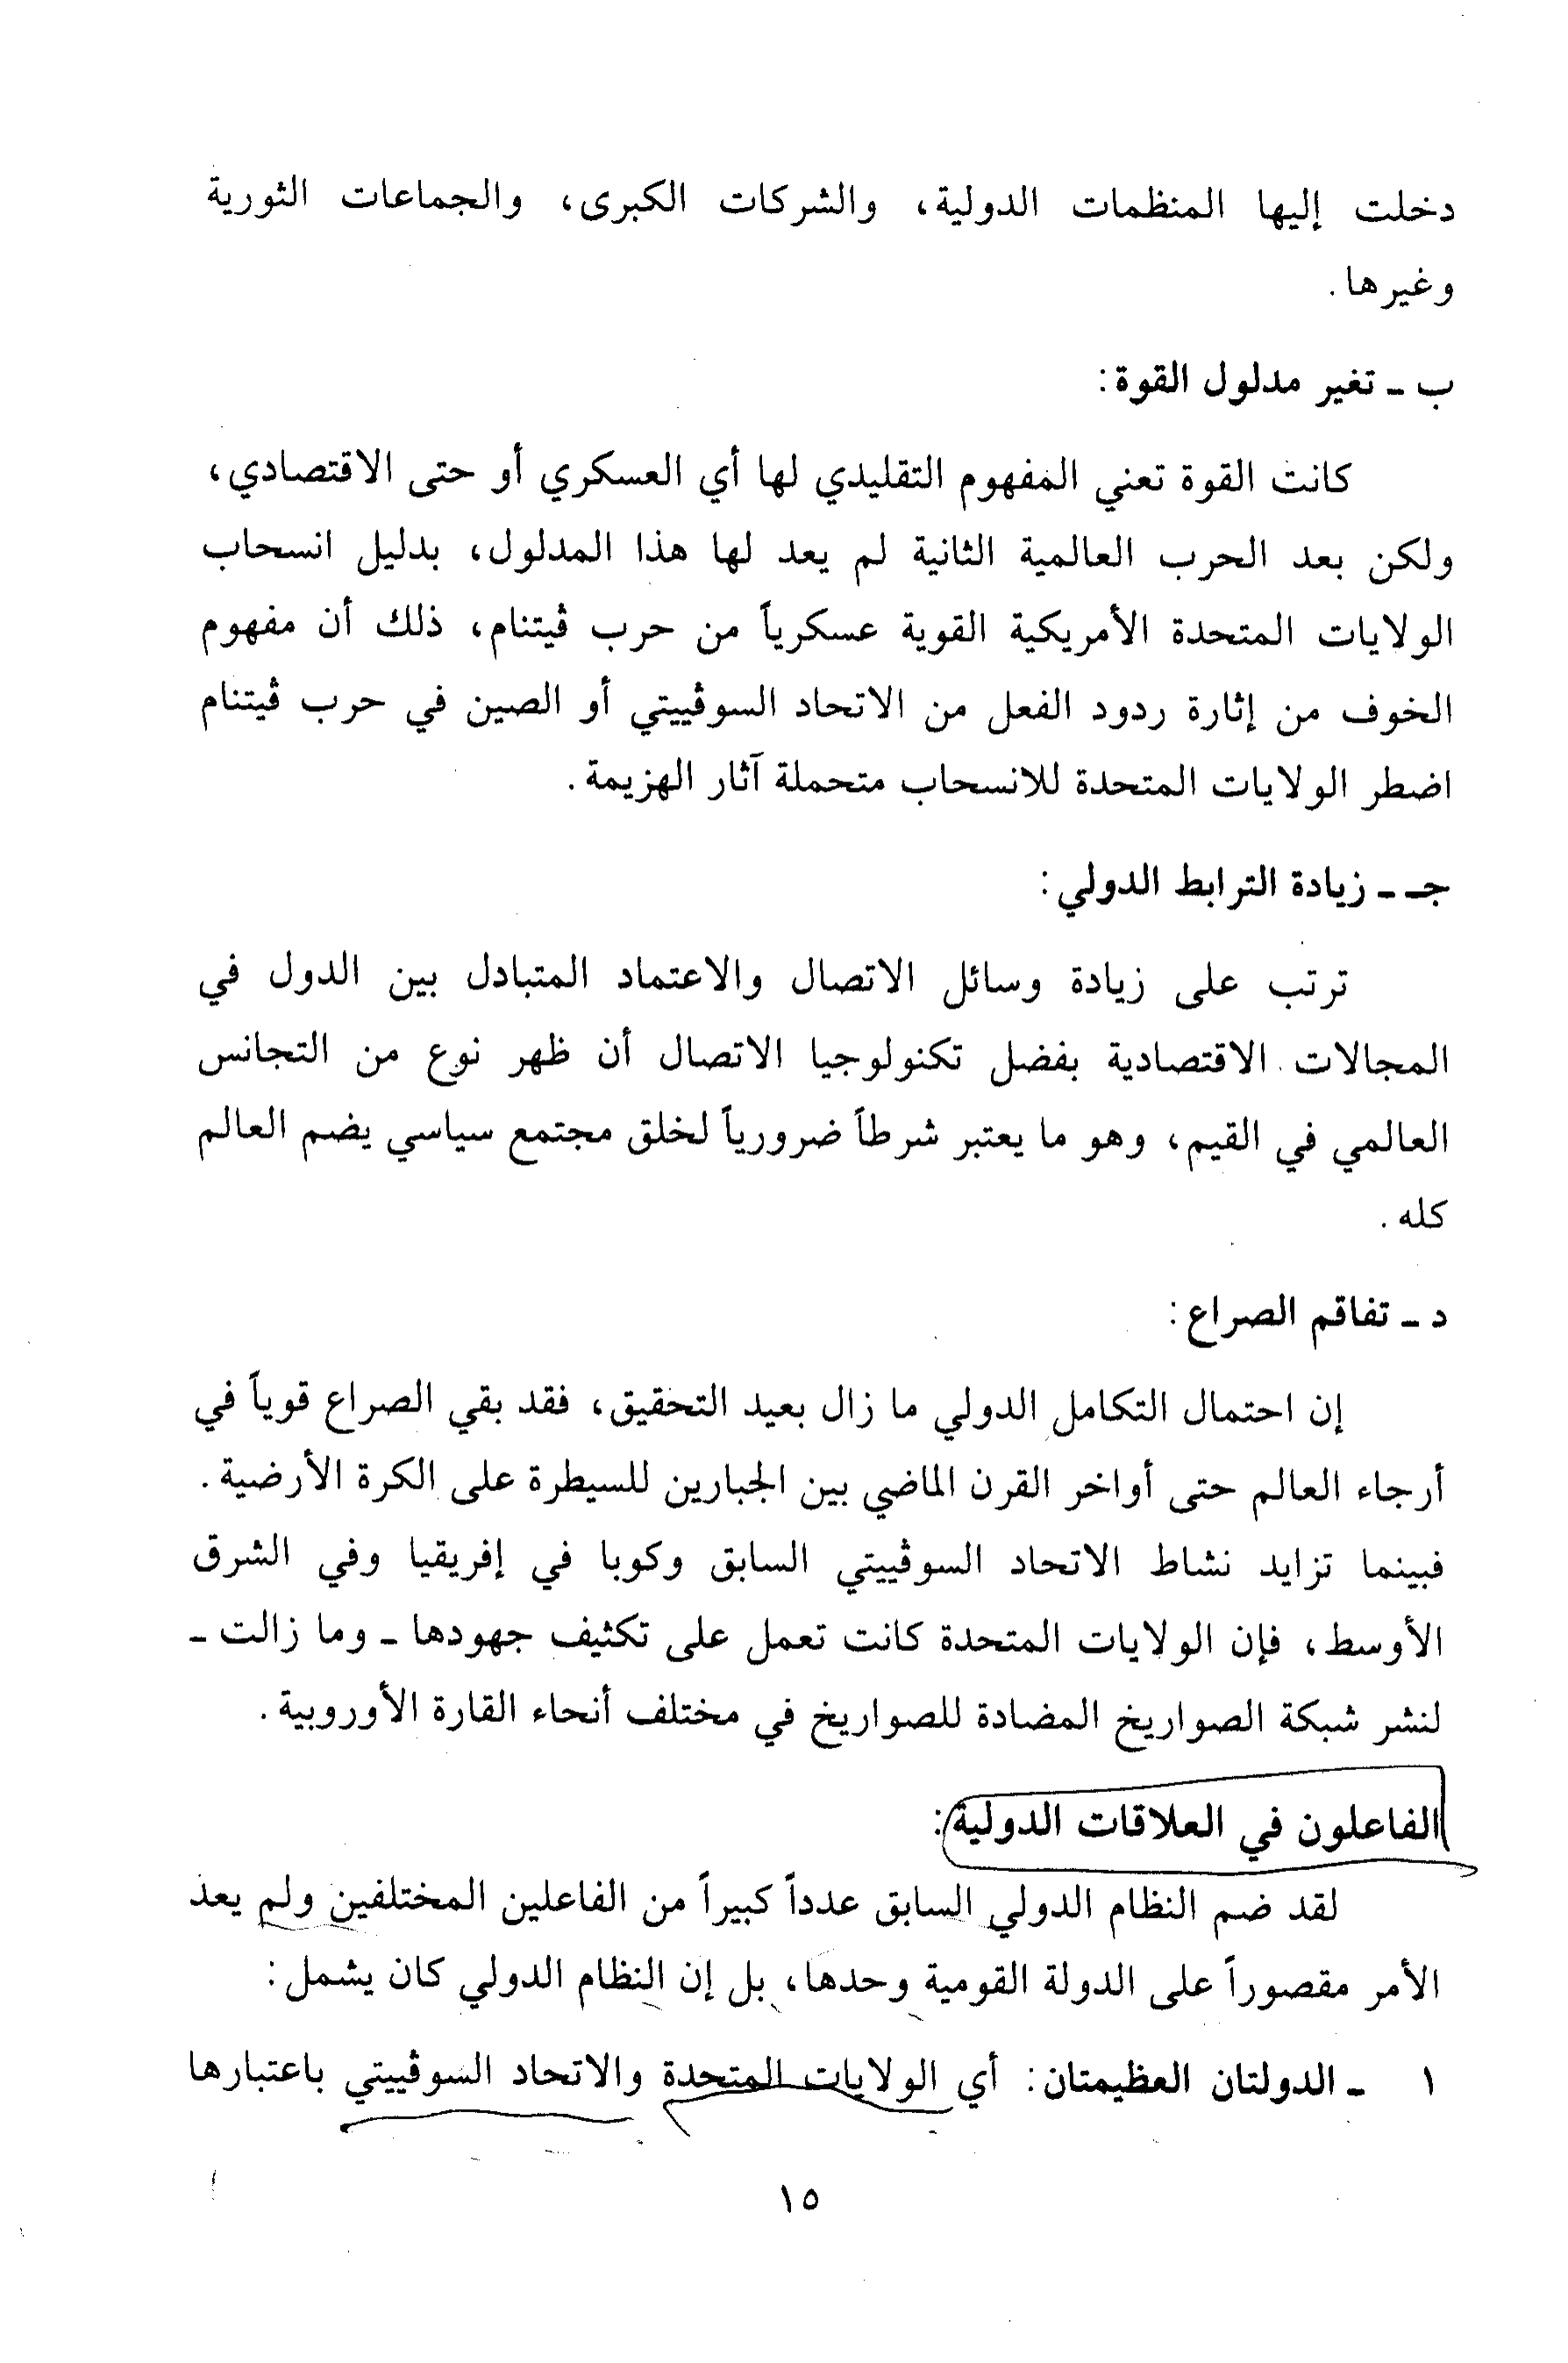 دخلت إليها المنظمات الدولية، والشركات الكبرى، والجماعات الثورية
وغيرها.
ب ـ تغير مدلول القوة:
كانت القوة تعني المفهوم التقليدي لها أي العسكري أو حتى الاقتصادي،
ولكن بعد الحرب العالمية الثانية لم يعد لها هذا المدلول، بدليل انسحاب
الولايات المتحدة الأمريكية القوية عسكرياً من حرب ڤيتنام، ذلك أن مفهوم
الخوف من إثارة ردود الفعل من الاتحاد السوڤييتي أو الصين في حرب ڤيتنام
اضطر الولايات المتحدة للانسحاب متحملة آثار الهزيمة.
جـ ـ زيادة الترابط الدولي:
ترتب على زيادة وسائل الاتصال والاعتماد المتبادل بين الدول في
المجالات الاقتصادية بفضل تكنولوجيا الاتصال أن ظهر نوع من التجانس
العالمي في القيم، وهو ما يعتبر شرطاً ضرورياً لخلق مجتمع سياسي يضم العالم
كله.
د ـ تفاقم الصراع:
إن احتمال التكامل الدولي ما زال بعيد التحقيق، فقد بقي الصراع قوياً في
أرجاء العالم حتى أواخر القرن الماضي بين الجبارين للسيطرة على الكرة الأرضية.
فبينما تزايد نشاط الاتحاد السوڤييتي السابق وكوبا في إفريقيا وفي الشرق
الأوسط، فإن الولايات المتحدة كانت تعمل على تكثيف جهودها ـ وما زالت ـ
لنشر شبكة الصواريخ المضادة للصواريخ في مختلف أنحاء القارة الأوروبية.
الفاعلون في العلاقات الدولية:
لقد ضم النظام الدولي السابق عدداً كبيراً من الفاعلين المختلفين ولم يعد
الأمر مقصوراً على الدولة القومية وحدها، بل إن النظام الدولي كان يشمل:
١ ـ الدولتان العظيمتان: أي الولايات المتحدة والاتحاد السوڤييتي باعتبارها
١٥